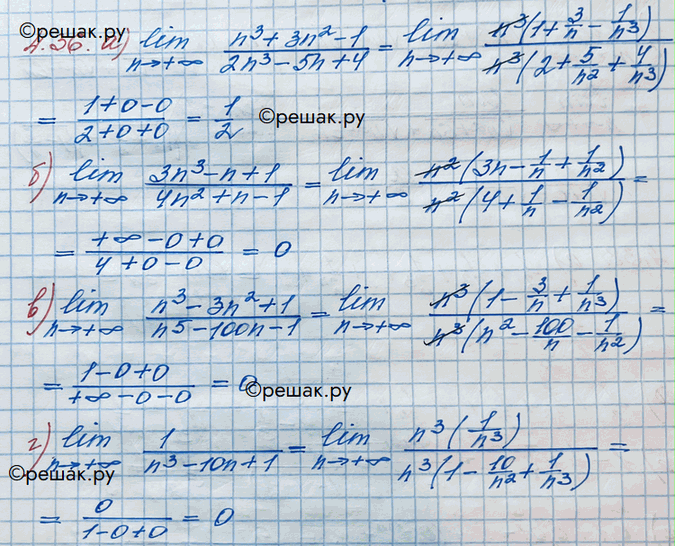 ©решак.ру
4.56. а) lim n→+∞ (n³ + 3n² − 1)/(2n³ − 5n + 4) = lim n→+∞ n³(1 + 3/n − 1/n³)/n³(2 + 5/n² + 4/n³)
= (1 + 0 − 0)/(2 + 0 + 0) = 1/2 ©решак.ру
б) lim n→+∞ (3n³ − n + 1)/(4n² + n − 1) = lim n→+∞ n²(3n − 1/n + 1/n²)/n²(4 + 1/n − 1/n²) =
= (+∞ − 0 + 0)/(4 + 0 − 0) = 0
в) lim n→+∞ (n³ − 3n² + 1)/(n⁵ − 100n − 1) = lim n→+∞ n³(1 − 3/n + 1/n³)/n³(n² − 100/n − 1/n²) =
= (1 − 0 + 0)/(+∞ − 0 − 0) = 0 ©решак.ру
г) lim n→+∞ 1/(n³ − 10n + 1) = lim n→+∞ n³(1/n³)/n³(1 − 10/n² + 1/n³) =
©решак.ру
= 0/(1 − 0 + 0) = 0